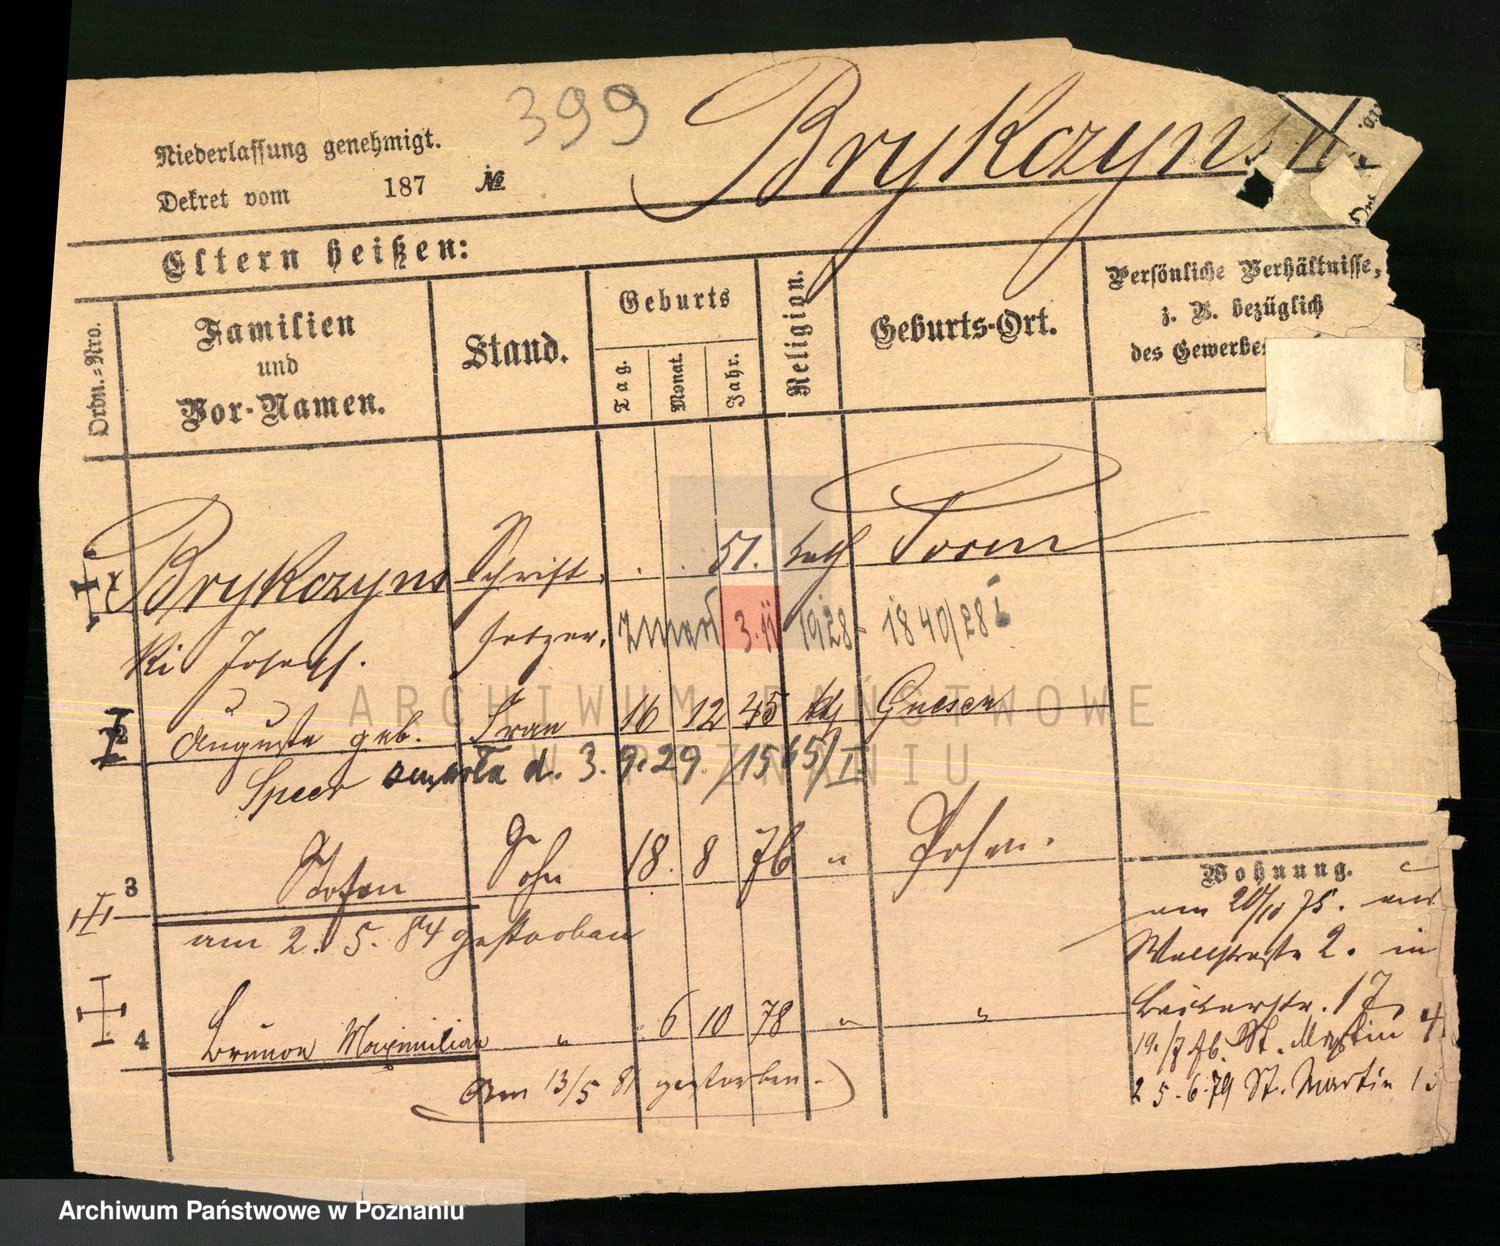 399
Brykczynski
Niederlassung genehmigt.
Dekret vom 187 №
Eltern heißen:
Ordn.-Nro.
Familien
und
Vor-Namen.
Stand.
Geburts
Tag.
Monat.
Jahr.
Religion.
Geburts-Ort.
Persönliche Verhältnisse,
z. B. bezüglich
des Gewerbes
Brykczyns Schrift. . . 51. kath Posen
ki Joseph. setzer. zmarł 3.II 1928 - 1840/28 I
2 Auguste geb. Frau 16 12 45 kth Gnesen
Speer zmarła d. 3. 9. 29. /1565/I
3 Stefan Sohn 18. 8 76 " Posen.
am 2. 5. 84 gestorben
4 Brunon Maximilian " 6 10 78 " "
Am 13/5 81 gestorben.
Wohnung.
am 20/10 75. aus
Wallstraße 2. in
Bäckerstr. 17.
19./7 76. St. Martin 4
25.6.79 St. Martin
ARCHIWUM PAŃSTWOWE
W POZNANIU
Archiwum Państwowe w Poznaniu